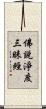 佛説淨度
三昧經